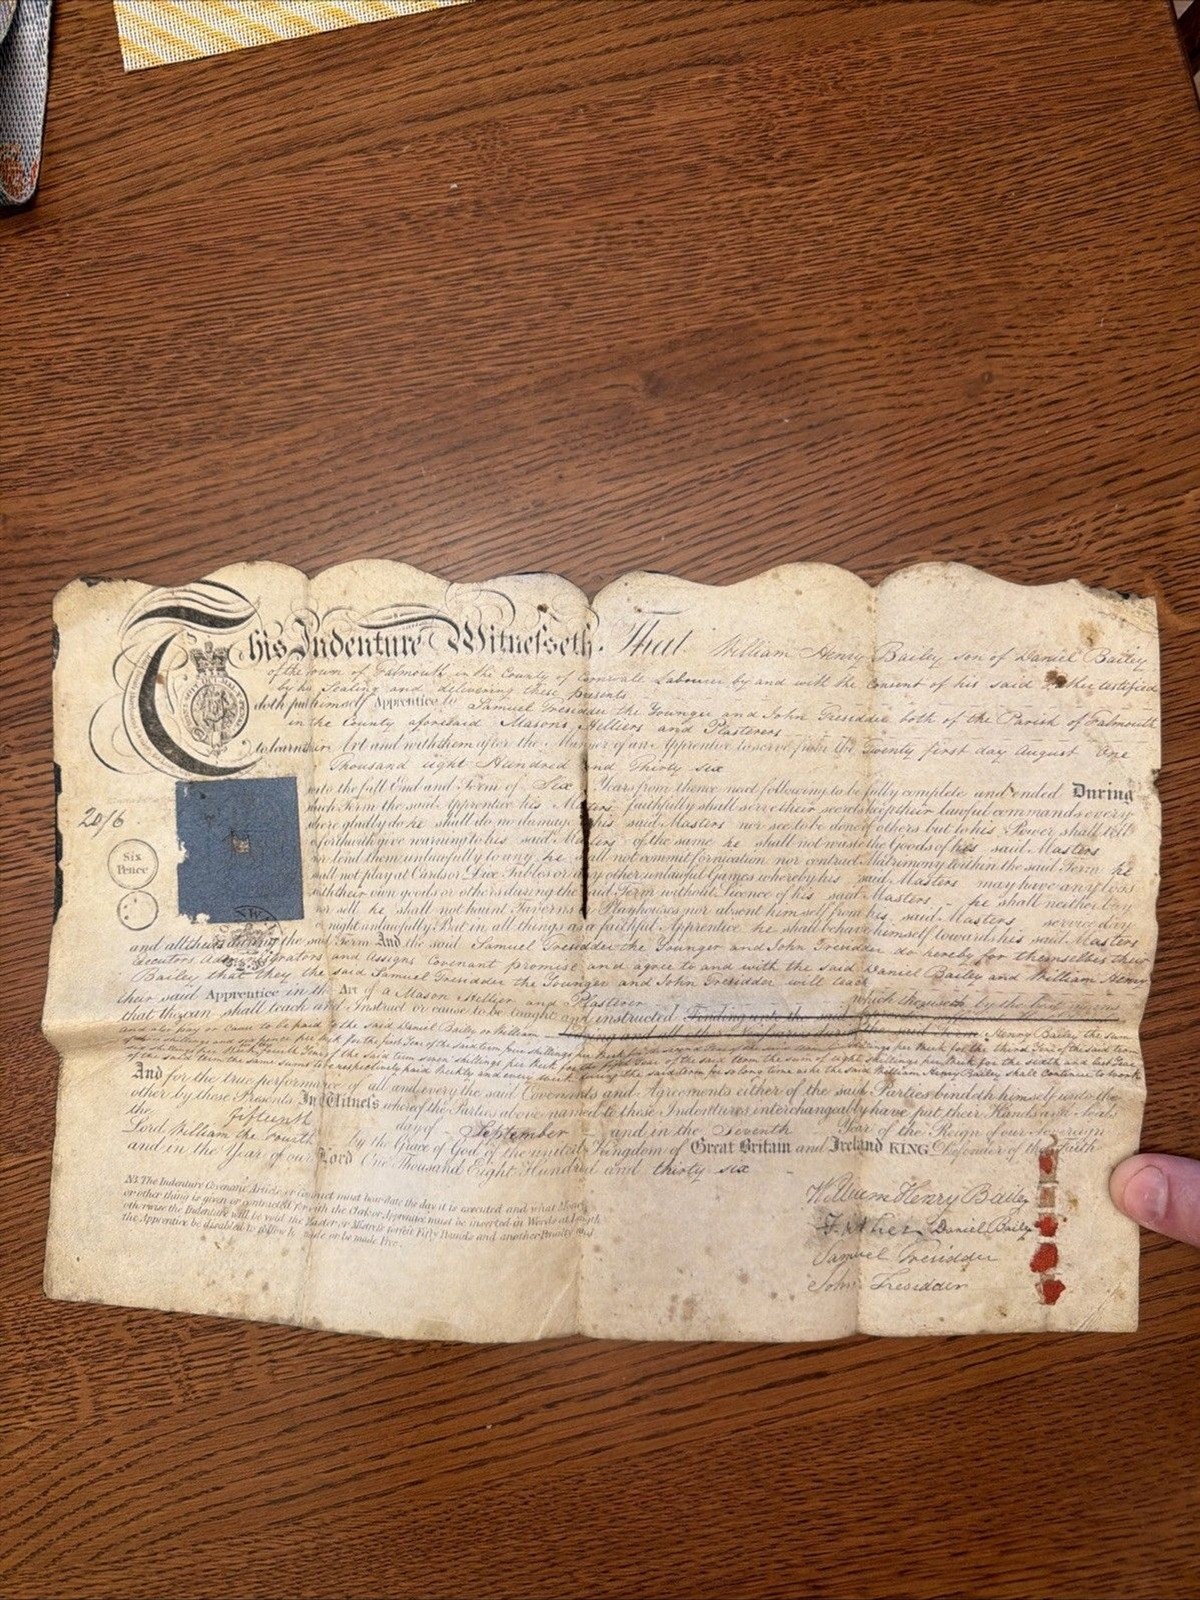 This Indenture Witnesseth. That William Henry Bailey son of Daniel Bailey
of the town of Falmouth in the County of Cornwall Labourer by and with the Consent of his said Father testified
by his Sealing and delivering these presents
doth put himself Apprentice to Samuel Tresidder the Younger and John Tresidder both of the Parish of Falmouth
in the County aforesaid Masons, Helliers and Plasterers
to learn their Art and with them after the Manner of an Apprentice to serve from the Twenty first day August One
Thousand eight Hundred and Thirty six
unto the full End and Term of Six Years from thence next following to be fully complete and ended During
which Term the said Apprentice his Masters faithfully shall serve their secrets keep their lawful commands every
where gladly do he shall do no damage his said Masters nor see to be done of others but to his Power shall tell
or forthwith give warning to his said Masters of the same he shall not waste the Goods of his said Masters
nor lend them unlawfully to any he shall not commit fornication nor contract Matrimony within the said Term he
shall not play at Cards or Dice Tables or any other unlawful Games whereby his said Masters may have any loss
with their own goods or others during the said Term without Licence of his said Masters he shall neither buy
nor sell he shall not haunt Taverns or Playhouses nor absent himself from his said Masters service day
or night unlawfully But in all things as a faithful Apprentice he shall behave himself towards his said Masters
and all theirs during the said Term And the said Samuel Tresidder the Younger and John Tresidder do hereby for themselves their
Executors Administrators and Assigns Covenant promise and agree to and with the said Daniel Bailey and William Henry
Bailey that they the said Samuel Tresidder the Younger and John Tresidder will teach
their said Apprentice in the Art of a Mason Hellier and Plasterer which they useth by the best means
that they can shall teach and Instruct or cause to be taught and instructed Finding unto the said
and also pay or cause to be paid to the said Daniel Bailey or William Henry Bailey the sum
of five shillings and six pence per Week for the first Year of the said term shillings per Week for the third Year of the said term
Year of the said term seven shillings per Week for the fifth Year of the said term the sum of eight shillings per Week for the sixth and last Year
of the said sums to be respectively paid Weekly and every Week during the said term for so long time as he the said William Henry Bailey shall Continue to Work
And for the true performance of all and every the said Covenants and Agreements either of the said Parties bindeth himself unto the
other by these Presents In Witness whereof the Parties above named to these Indentures interchangeably have put their Hands and Seals
the fifteenth day of September and in the Seventh Year of the Reign of our Sovereign
Lord William the Fourth by the Grace of God of the united Kingdom of Great Britain and Ireland KING Defender of the Faith
and in the Year of our Lord One Thousand Eight Hundred and thirty six
20/6
Six
Pence
NB. The Indenture Covenant Article or Contract must bear date the day it is executed and what Money
or other thing is given or contracted for with the Clerk or Apprentice must be inserted in Words at Length
otherwise the Indenture will be void the Master or Mistress forfeit Fifty Pounds and another Penalty and
the Apprentice be disabled to follow his trade or be made Free.
William Henry Bailey
Father Daniel Bailey
Samuel Tresidder
John Tresidder